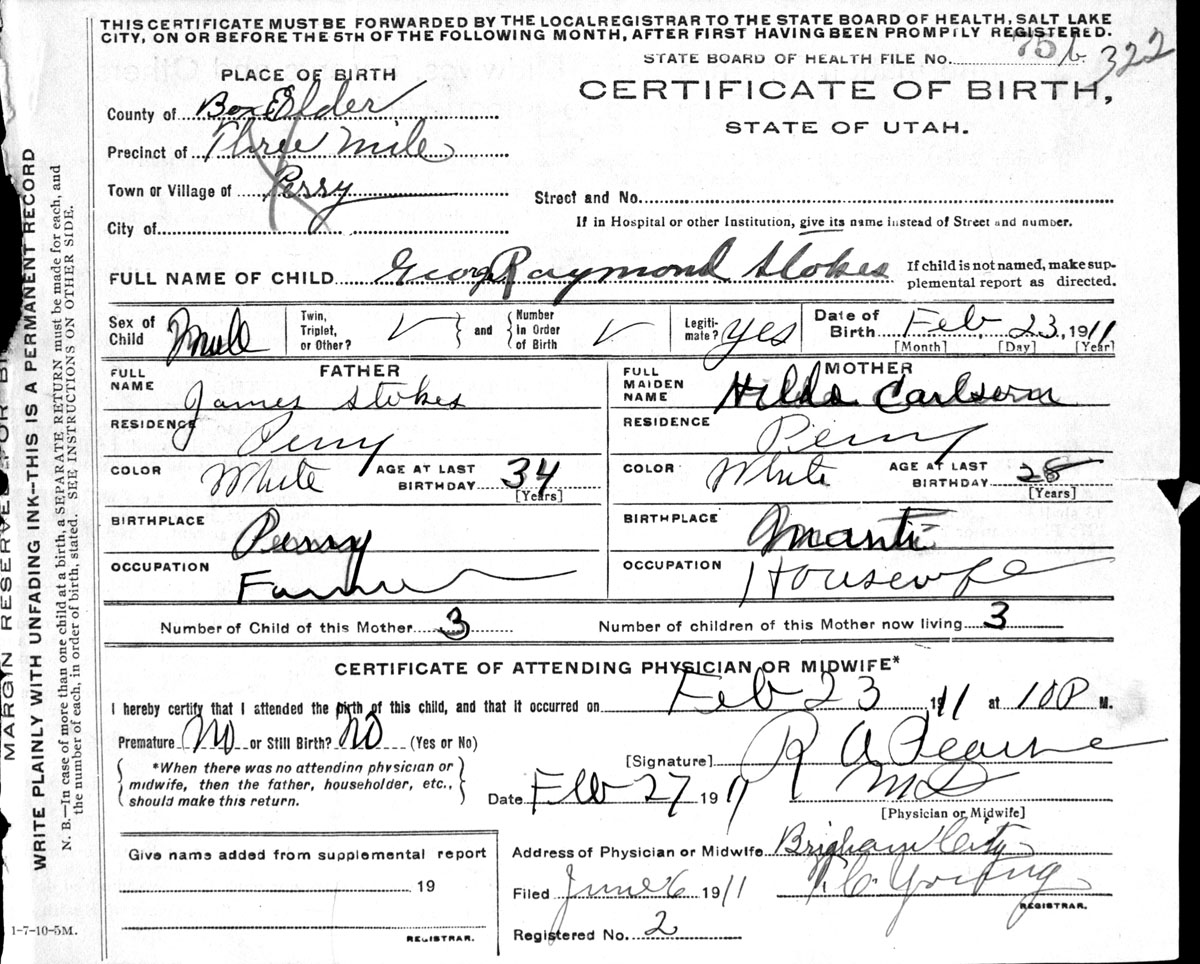 THIS CERTIFICATE MUST BE FORWARDED BY THE LOCAL REGISTRAR TO THE STATE BOARD OF HEALTH, SALT LAKE
CITY, ON OR BEFORE THE 5TH OF THE FOLLOWING MONTH, AFTER FIRST HAVING BEEN PROMPTLY REGISTERED.
STATE BOARD OF HEALTH FILE NO. 75 322
PLACE OF BIRTH
CERTIFICATE OF BIRTH,
STATE OF UTAH.
County of Box Elder
Precinct of Three Mile
Town or Village of Perry
Street and No.
City of
If in Hospital or other Institution, give its name instead of Street and number.
FULL NAME OF CHILD George Raymond Stokes
If child is not named, make sup-
plemental report as directed.
Sex of Child Male
Twin, Triplet, or Other?
and
Number in Order of Birth
Legiti-mate? Yes
Date of Birth Feb 23, 1911
[Month] [Day] [Year]
FATHER
FULL NAME James Stokes
RESIDENCE Perry
COLOR White AGE AT LAST BIRTHDAY 34
[Years]
BIRTHPLACE Perry
OCCUPATION Farmer
MOTHER
FULL MAIDEN NAME Hilda Carlsern
RESIDENCE Perry
COLOR White AGE AT LAST BIRTHDAY 28
[Years]
BIRTHPLACE Manti
OCCUPATION Housewife
Number of Child of this Mother 3 Number of children of this Mother now living 3
CERTIFICATE OF ATTENDING PHYSICIAN OR MIDWIFE*
I hereby certify that I attended the birth of this child, and that it occurred on Feb 23, 1911 at 100 P M.
Premature No or Still Birth? No (Yes or No)
*When there was no attending physician or
midwife, then the father, householder, etc.,
should make this return.
[Signature] R A Pearse
M D
Date Feb 27 1911
[Physician or Midwife]
Give name added from supplemental report
19
REGISTRAR.
Address of Physician or Midwife Brigham City
Filed June 6 1911 Young
REGISTRAR.
Registered No. 2
1-7-10-5M.
MARGIN RESERVED FOR
WRITE PLAINLY WITH UNFADING INK—THIS IS A PERMANENT RECORD
N. B.—In case of more than one child at a birth, a SEPARATE RETURN must be made for each, and
the number of each, in order of birth, stated. SEE INSTRUCTIONS ON OTHER SIDE.